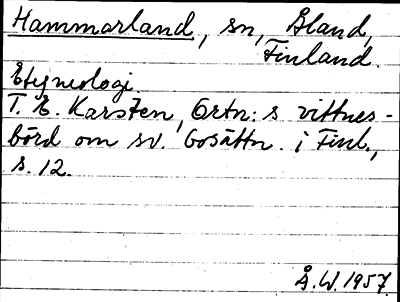 Hammarland, sn, Åland,
Finland.
Etymologi.
T. E. Karsten, Ortn:s vittnes-
börd om sv. bosättn. i Finl.,
s. 12.
Å.W. 1957.